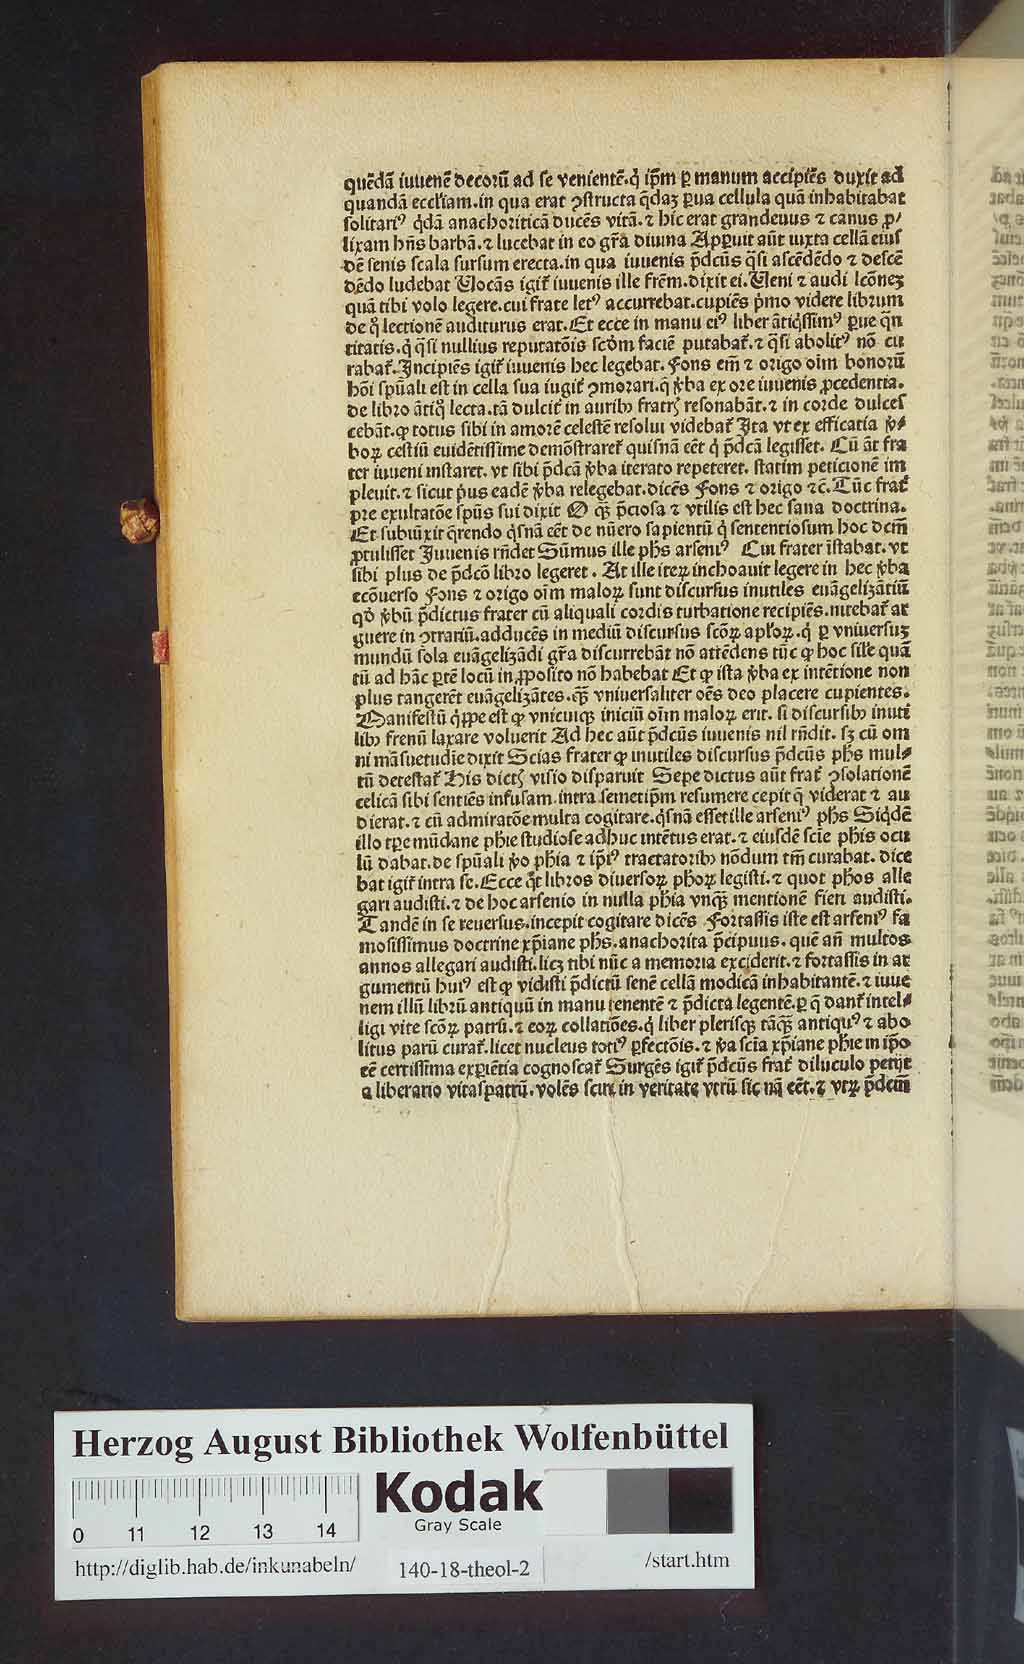 quēdā iuuenē decorū ad se venientē.q̇ ip̄m ꝑ manum accipiēs duxit ad
quandā eccl'iam.in qua erat ꝯstructa q̄daꝫ ꝑua cellula quā inhabitabat
solitariꝰ q̇dā anachoriticā ducēs vitā.⁊ hic erat grandeuus ⁊ canus ꝓ/
lixam hn̄s barbā.⁊ lucebat in eo gr̄a diuina Apꝑuit aūt iuxta cellā eius
dē senis scala sursum erecta.in qua iuuenis p̄dcūs q̄si ascēdēdo ⁊ descē
dēdo ludebat Uocās igit̄ iuuenis ille frēm.dixit ei.Ueni ⁊ audi lcōneꝫ
quā tibi volo legere.cui frate letꝰ accurrebat.cupiēs p̄mo videre librum
de q̊ lectionē auditurus erat.Et ecce in manu eiꝰ liber ātiq̇ssimꝰ ꝑue q̄n
titatis.q̇ q̄si nullius reputatōis scḋm faciē putabat̄.⁊ q̄si abolitꝰ nō cu
rabat̄.Incipiēs igit̄ iuuenis hec legebat. Fons em̄ ⁊ origo oīm bonorū
hōi spūali est in cella sua iugit̄ ꝯmorari.q̇ v̇ba ex ore iuuenis ꝓcedentia.
de libro ātiq̊ lecta.tā dulcit̄ in auribꝫ fratrꝭ resonabāt.⁊ in corde dulces
cebāt.ꝙ totus sibi in amorē celestē resolui videbat̄ Ita vt ex efficatia v̇⸗
boꝝ cestiū euidētissime demōstraret̄ quisnā eēt q̇ p̄dcā legisset. Cū āt fra
ter iuueni instaret.vt sibi p̄dcā v̇ba iterato repeteret. statim peticionē im
pleuit.⁊ sicut p̄us eadē v̇ba relegebat.dicēs Fons ⁊ origo ⁊c̄.Tūc frat̄
pre exultatōe spūs sui dixit O q̄ꝫ p̄ciosa ⁊ vtilis est hec sana doctrina.
Et subiūxit q̄rendo q̇snā eēt de nūero sapientū q̇ sententiosum hoc dcm̄
ꝓtulisset Iuuenis rn̄det Sūmus ille phs arseniꝰ Cui frater īstabat.vt
sibi plus de p̄dcō libro legeret. At ille iteꝝ inchoauit legere in hec v̇ba
ecōuerso Fons ⁊ origo oīm maloꝝ sunt discursus inutiles euāgelizātiū
qḋ v̇bū p̄dictus frater cū aliquali cordis turbatione recipiēs.nitebat̄ ar
guere in ꝯtrariū.adducēs in mediū discursus scōꝝ apl'oꝝ.q̇ ꝑ vniuersuꝫ
mundū sola euāgelizādi gr̄a discurrebāt nō attēdens tūc ꝙ hoc sil'e quā
tū ad hāc ꝑtē locū in ꝓposito nō habebat Et ꝙ ista v̇ba ex intētione non
plus tangerēt euāgelizātes.q̄ꝫ vniuersaliter oēs deo placere cupientes.
Manifestū q̇ppe est ꝙ vnicuiqꝫ iniciū oīm maloꝝ erit. si discursibꝫ inuti
libꝫ frenū laxare voluerit Ad hec aūt p̄dcūs iuuenis nil rn̄dit. sꝫ cū om
ni māsuetudīe dixit Scias frater ꝙ inutiles discursus p̄dcūs phs mul⸗
tū detestat̄ His dictꝭ visio disparuit Sepe dictus aūt frat̄ ꝯsolationē
celicā sibi sentiēs infusam.intra semetip̄m resumere cepit q̄ viderat ⁊ au
dierat.⁊ cū admiratōe multa cogitare.q̇snā esset ille arseniꝰ phs Siq̇dē
illo tꝑe mūdane phīe studiose adhuc intētus erat.⁊ eiusdē scīe phīs ocu
lū dabat.de spūali v̇o phīa ⁊ ip̄iꝰ tractatoribꝫ nōdum tm̄ curabat. dice
bat igit̄ intra se.Ecce q̊t libros diuersoꝝ phoꝝ legisti.⁊ quot phos alle
gari audisti.⁊ de hoc arsenio in nulla phīa vnq̄ꝫ mentionē fieri audisti.
Tandē in se reuersus.incepit cogitare dicēs Fortassis iste est arseniꝰ fa
mosissimus doctrine xp̄iane phs.anachorita p̄cipuus. quē an̄ multos
annos allegari audisti.licꝫ tibi nūc a memoria exciderit.⁊ fortassis in ar
gumentū huiꝰ est ꝙ vidisti p̄dictū senē cellā modicā inhabitantē.⁊ iuue
nem illū librū antiquū in manu tenentē ⁊ p̄dicta legentē.ꝑ q̄ dant̄ intel⸗
ligi vite scōꝝ patrū.⁊ eoꝝ collatiōes.q̇ liber pleris̄qꝫ tāq̄ꝫ antiquꝰ ⁊ abo
litus parū curat̄.licet nucleus totiꝰ ꝑfectōis.⁊ v̇a scīa xp̄iane phīe in ip̄o
eē certissima exꝑiētia cognoscat̄ Surgēs igit̄ p̄dcūs frat̄ diluculo petijt
a liberario vitaspatrū.volēs scire in veritate vtrū sic nā eēt.⁊ vtꝝ p̄dcm̄
Herzog August Bibliothek Wolfenbüttel
Kodak
Gray Scale
0 11 12 13 14
http://diglib.hab.de/inkunabeln/ 140-18-theol-2 /start.htm